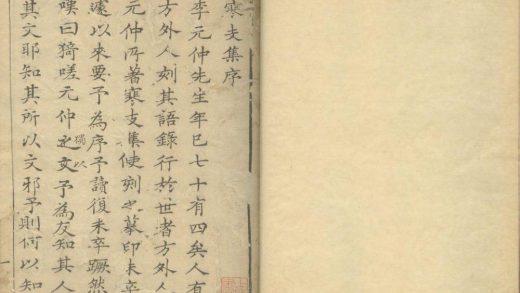 寒支集序
李元仲先生年已七十有四矣人有
方外人刻其語錄行於世者方外人
元仲所著寒支集使刻之摹印未卒
遽以來要予為序予讀復未卒蹶然
嘆曰猗嗟元仲之文獨以予為友知其人
其文耶知其所以文邪予則何以知
一